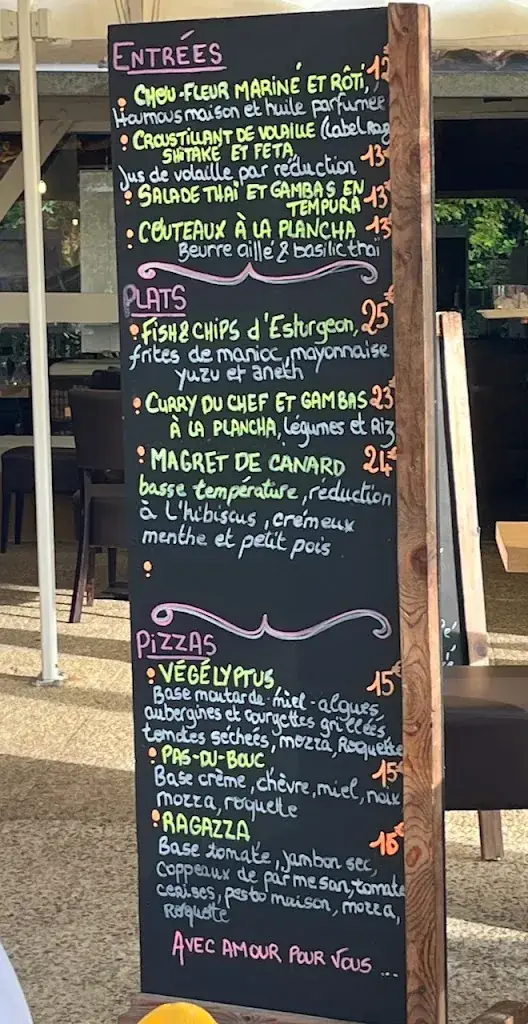 ENTRÉES
CHOU-FLEUR MARINÉ ET RÔTI, 12
Houmous maison et huile parfumée
CROUSTILLANT DE VOLAILLE (Label Roug
SHITAKE ET FETA 13
Jus de volaille par réduction
SALADE THAÏ ET GAMBAS EN 13
TEMPURA
COUTEAUX À LA PLANCHA 13
Beurre aillé & basilic thaï
PLATS
FISH & CHIPS d'Esturgeon, 25€
frites de manioc, mayonnaise
yuzu et aneth
CURRY DU CHEF ET GAMBAS 23€
À LA PLANCHA, légumes et Riz
MAGRET DE CANARD 24€
basse température, réduction
à l'hibiscus, crémeux
menthe et petit pois
PIZZAS
VÉGÉLYPTUS 15€
Base moutarde-miel-algues,
aubergines et courgettes grillées,
tomates séchées, mozza, Roquette
PAS-DU-BOUC 15€
Base crème, chèvre, miel, noix
mozza, roquette
RAGAZZA 16€
Base tomate, jambon sec,
Coppeaux de parmesan, tomate
cerises, pesto maison, mozza,
Roquette
AVEC AMOUR POUR VOUS ...